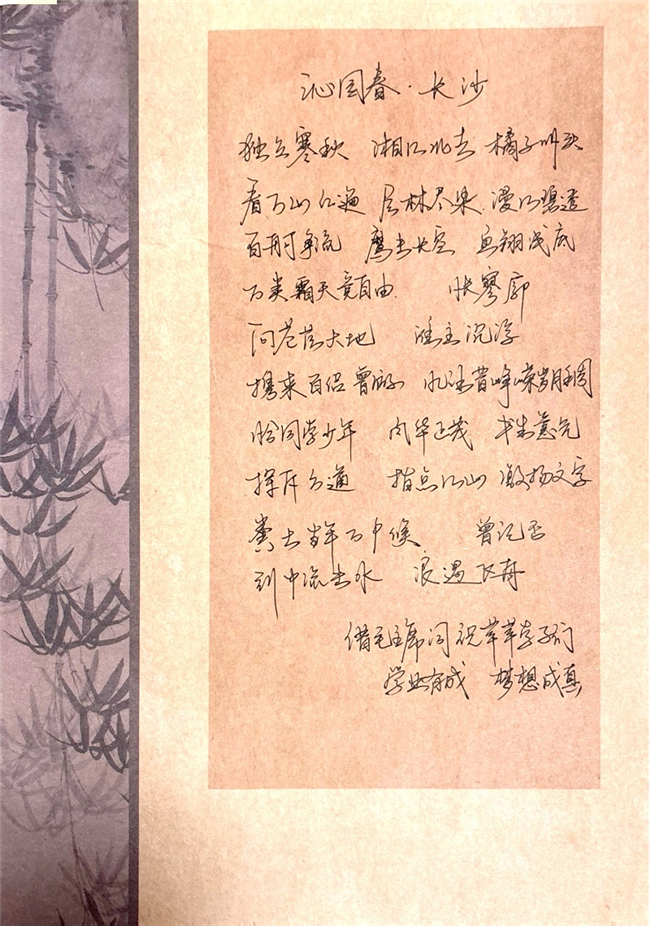 沁园春·长沙
独立寒秋 湘江北去 橘子洲头
看万山红遍 层林尽染 漫江碧透
百舸争流 鹰击长空 鱼翔浅底
万类霜天竞自由 怅寥廓
问苍茫大地 谁主沉浮
携来百侣曾游 忆往昔峥嵘岁月稠
恰同学少年 风华正茂 书生意气
挥斥方遒 指点江山 激扬文字
粪土当年万户侯 曾记否
到中流击水 浪遏飞舟
借毛主席词 祝莘莘学子们
学业有成 梦想成真